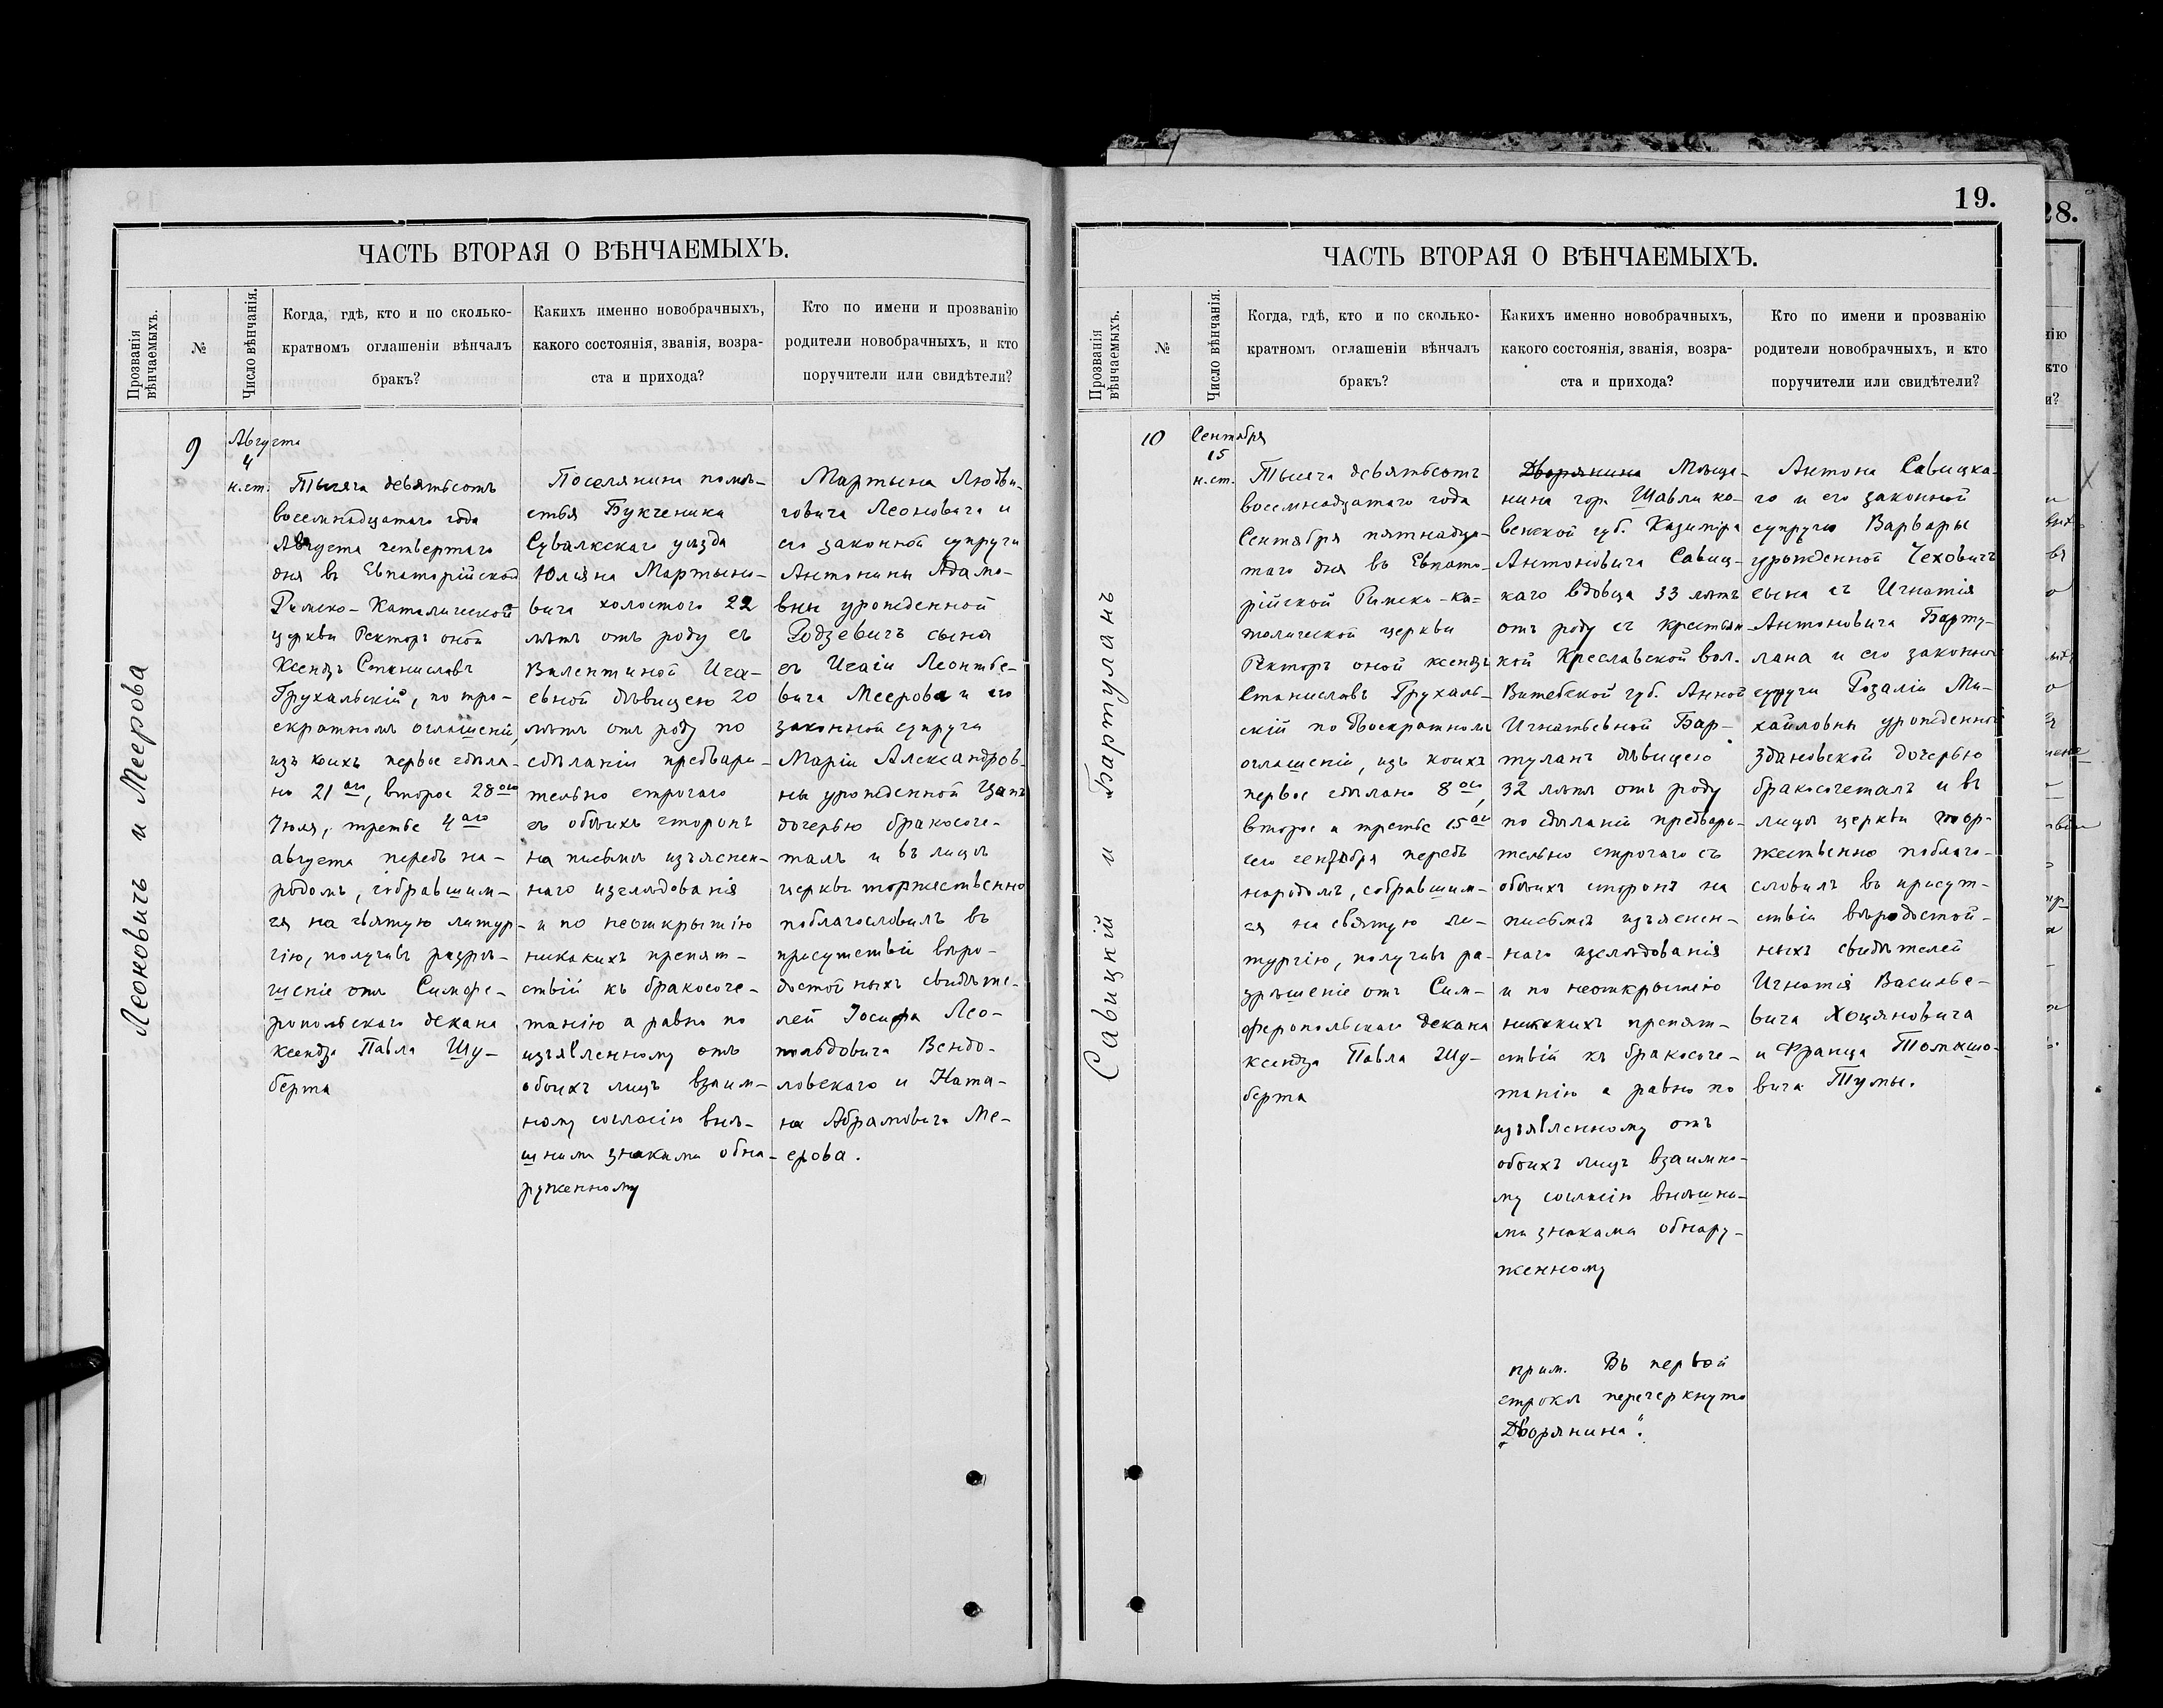 ЧАСТЬ ВТОРАЯ О ВѢНЧАЕМЫХЪ.
Прозванія
вѣнчаемыхъ.
№
Число вѣнчанія.
Когда, гдѣ, кто и по сколько-
кратномъ оглашеніи вѣнчалъ
бракъ?
Какихъ именно новобрачныхъ,
какого состоянія, званія, возра-
ста и прихода?
Кто по имени и прозванію
родители новобрачныхъ, и кто
поручители или свидѣтели?
Леоновичъ и Меерова
9
Августа
4
н.ст.
Тысяча девятьсотъ
восемнадцатаго года
Августа четвертаго
дня въ Евпаторійской
Римско-Католической
церкви Ректоръ оной
Ксендзъ Станиславъ
Грухальскій, по тро-
екратномъ оглашеніи,
изъ коихъ первое сдѣла-
но 21аго, второе 28ого
Іюля, третье 4аго
августа передъ на-
родомъ, собравшим-
ся на святую литур-
гію, получивъ разрѣ-
шеніе отъ Симфе-
ропольскаго декана
ксендза Павла Шу-
берта
Поселянина помѣ-
стья Букченика
Сувалкскаго уѣзда
Юліяна Мартыно-
вича холостого 22
лѣтъ отъ роду съ
Валентиной Иса-
евной дѣвицею 20
лѣтъ отъ роду по
сдѣланіи предвари-
тельно строгаго
съ обѣихъ сторонъ
на письмѣ изъяснен-
наго изслѣдованія
и по неоткрытію
никакихъ препят-
ствій къ бракосоче-
танію а равно по
изъявленному отъ
обоихъ лицъ взаим-
ному согласію внѣ-
шними знаками обна-
руженному
Мартына Людви-
говича Леоновича и
его законной супруги
Антонины Адамо-
вны урожденной
Родзевичъ сына
съ Исаіи Леонтье-
вича Меерова и его
законной супруги
Маріи Александров-
ны урожденной Цапъ
дочерью бракосоче-
талъ и въ лицѣ
церкви торжественно
поблагословилъ въ
присутствіи вѣро-
достойныхъ свидѣте-
лей Іосифа Лео-
польдовича Вендо-
ловскаго и Ната-
на Абрамовича Ме-
ерова.
19.
ЧАСТЬ ВТОРАЯ О ВѢНЧАЕМЫХЪ.
Прозванія
вѣнчаемыхъ.
№
Число вѣнчанія.
Когда, гдѣ, кто и по сколько-
кратномъ оглашеніи вѣнчалъ
бракъ?
Какихъ именно новобрачныхъ,
какого состоянія, званія, возра-
ста и прихода?
Кто по имени и прозванію
родители новобрачныхъ, и кто
поручители или свидѣтели?
Савицкій и Бартуланъ
10
Сентября
15
н.ст.
Тысяча девятьсотъ
восемнадцатаго года
Сентября пятнадца-
таго дня въ Евпато-
рійской Римско-ка-
толической церкви
Ректоръ оной ксендзъ
Станиславъ Грухаль-
скій по двоекратномъ
оглашеніи, изъ коихъ
первое сдѣлано 8ого,
второе и третье 15ого
сего сентября передъ
народомъ, собравшим-
ся на святую ли-
тургію, получивъ ра-
зрѣшеніе отъ Сим-
феропольскаго декана
ксендза Павла Шу-
берта
Дворянина Мѣща-
нина гор. Шавли ко-
венской губ. Казиміра
Антоновича Савиц-
каго вдовца 33 лѣтъ
отъ роду съ крестьян-
кой Креславской вол.
Витебской губ. Анной
Игнатьевной Бар-
туланъ дѣвицею
32 лѣтъ отъ роду
по сдѣланіи предвари-
тельно строгаго съ
обѣихъ сторонъ на
письмѣ изъяснен-
наго изслѣдованія
и по неоткрытію
никакихъ препят-
ствій къ бракосоче-
танію а равно по
изъявленному отъ
обоихъ лицъ взаимно-
му согласію внѣшни-
ми знаками обнару-
женному
прим. Въ первой
строкѣ перечеркнуто
„Дворянина“.
Антона Савицка-
го и его законной
супруги Варвары
урожденной Чеховичъ
сына съ Игнатія
Антоновича Барту-
лана и его законной
супруги Розаліи Ми-
хайловны урожденной
Здановской дочерью
бракосочеталъ и въ
лицѣ церкви тор-
жественно поблаго-
словилъ въ присут-
ствіи вѣродостой-
ныхъ свидѣтелей
Игнатія Василье-
вича Хоцяновича
и Франца Томашо-
вича Тумы.
28.